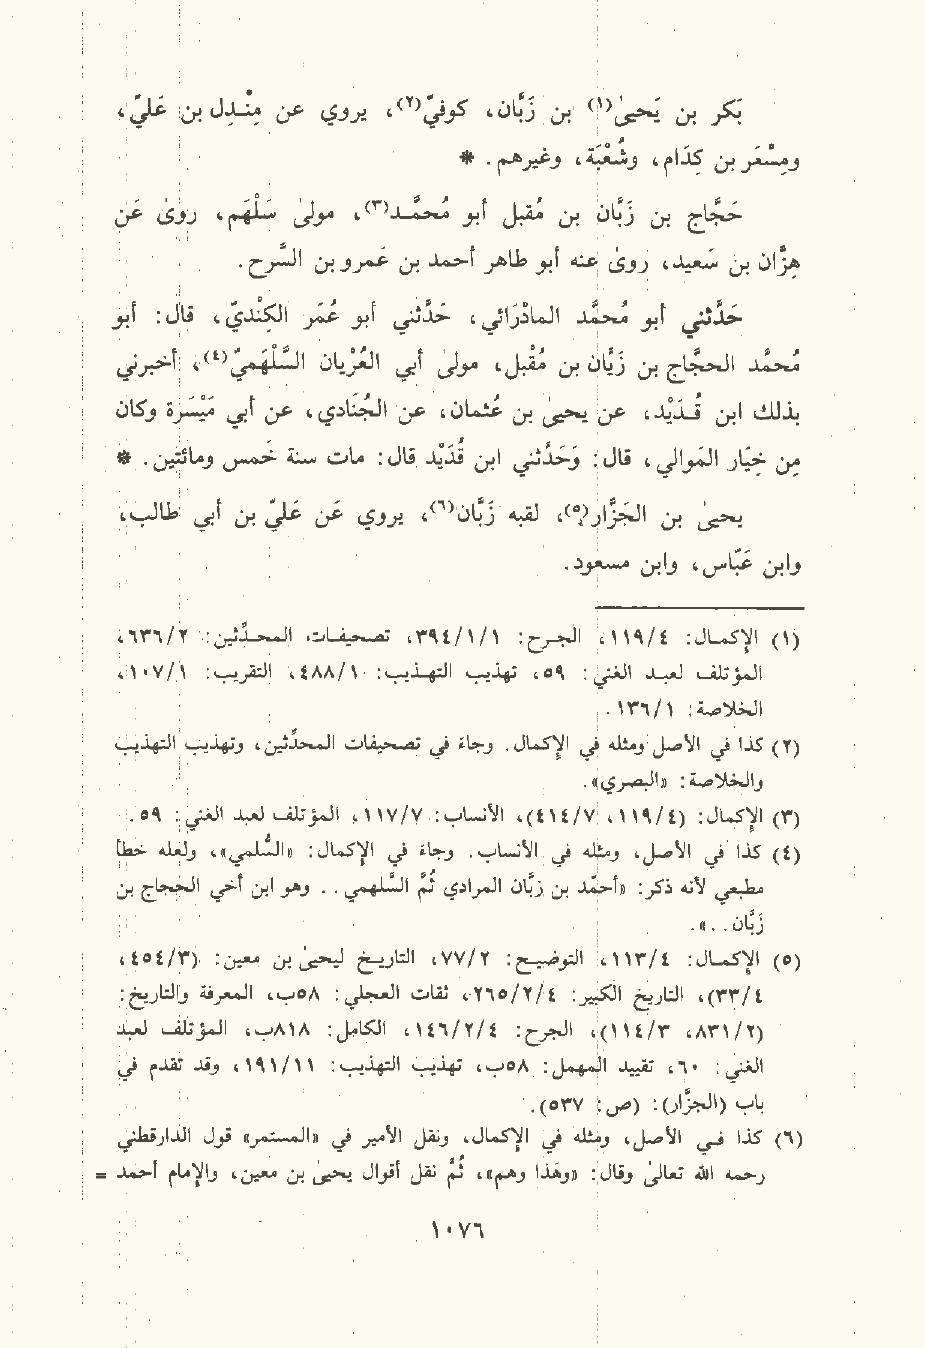 بَكر بن يَحيىٰ(١) بن زَبَّان، كوفيّ(٢)، يروي عن مِنْـدِل بن عَليّ،
ومِسْعَر بن كِدَام، وشُعْبَة، وغيرهم. *
حَجَّاج بن زَبَّان بن مُقبل أبو مُحمَّـد(٣)، مولىٰ سَلْهَم، روىٰ عَن
هِزَّان بن سَعيد، روىٰ عنه أبو طاهر أحمد بن عَمرو بن السَّرح.
حَدَّثني أبو مُحمَّد الماذَرَائي، حَدَّثني أبو عُمَر الكِنْديّ، قال: أبو
مُحمَّد الحجَّاج بن زَبَّان بن مُقْبل، مولىٰ أبي العُرْيان السَّلْهَميّ(٤)، أخبرني
بذلك ابن قُـدَيْد، عن يحيىٰ بن عُثمان، عن الجُنَادي، عن أبي مَيْسَرة وكان
من خِيَار المَوالي، قال: وَحَدَّثني ابن قُدَيْد قال: مات سنة خَمس ومائتين. *
يحيىٰ بن الجَزَّار(٥)، لقبه زَبَّان(٦)، يروي عَن عَليّ بن أبي طالب،
وابن عَبّاس، وابن مسعود.
(١) الإكمـال: ١١٩/٤، الجـرح: ٣٩٤/١/١، تصحيفـات المحـدِّثين: ٦٣٦/٢،
المؤتلف لعبـد الغني: ٥٩، تهذيب التهـذيب: ٤٨٨/١، التقريب: ١٠٧/١،
الخلاصة: ١٣٦/١.
(٢) كذا في الأصل ومثله في الإكمال. وجاء في تصحيفات المحدِّثين، وتهذيب التهذيب
والخلاصة: «البصري».
(٣) الإكمال: (١١٩/٤، ٤١٤/٧)، الأنساب: ١١٧/٧، المؤتلف لعبد الغني: ٥٩.
(٤) كذا في الأصل، ومثله في الأنساب. وجاء في الإكمال: «السُّلمي»، ولعله خطأ
مطبعي لأنه ذكر: «أحمَد بن زبَّان المرادي ثُم السَّلهمي.. وهو ابن أخي الحجاج بن
زَبَّان..».
(٥) الإكمـال: ١١٣/٤، التوضيـح: ٧٧/٢، التاريـخ ليحيىٰ بن معين: (٤٥٤/٣،
٣٣/٤)، التاريخ الكبير: ٢٦٥/٢/٤، ثقات العجلي: ٥٨ب، المعرفة والتاريخ:
(٨٣١/٢، ١١٤/٣)، الجرح: ١٤٦/٢/٤، الكامل: ٨١٨ب، المؤتلف لعبد
الغني: ٦٠، تقييد المهمل: ٥٨ب، تهذيب التهذيب: ١٩١/١١، وقد تقدم في
باب (الجزَّار): (ص: ٥٣٧).
(٦) كذا في الأصل، ومثله في الإكمال، ونقل الأمير في «المستمر» قول الدارقطني
رحمه الله تعالىٰ وقال: «وهَذا وهم»، ثُم نقل أقوال يحيىٰ بن معين، والإمام أحمد =
١٠٧٦